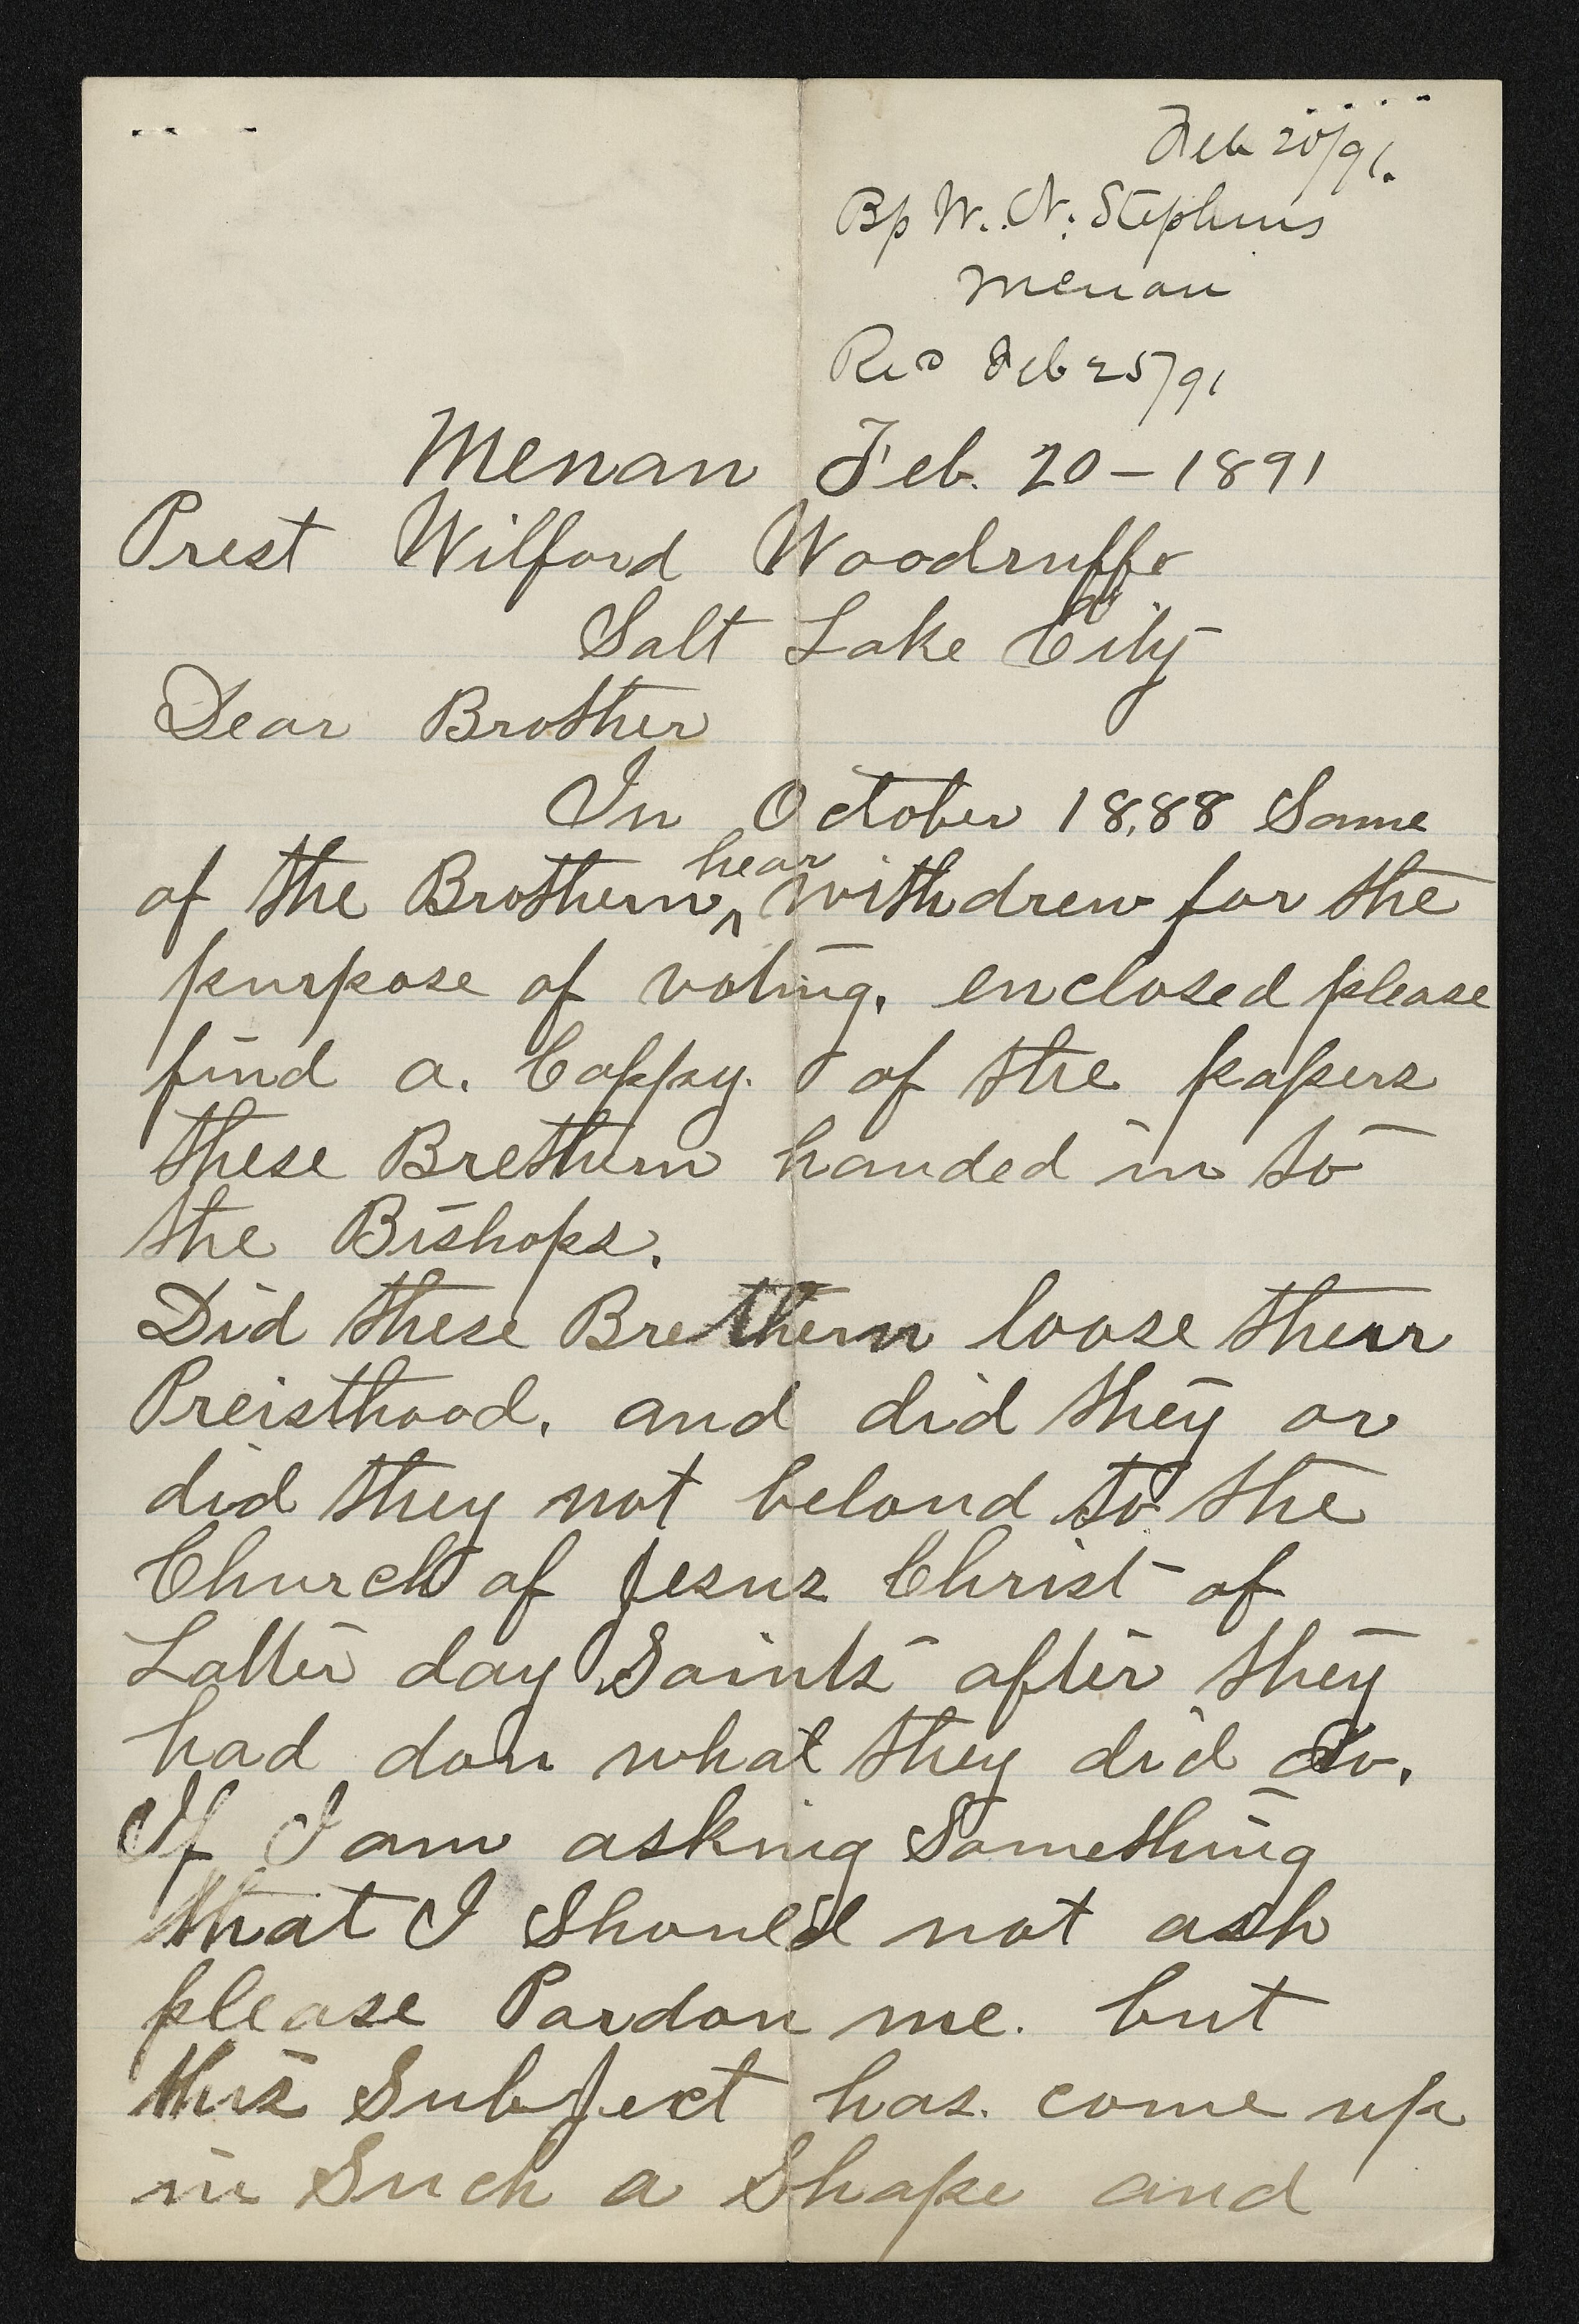 Feb 20/91.
Bp W. N. Stephens
Menan
Recd Feb 25/91
Menan Feb. 20 – 1891
Prest Wilford Woodruff
Salt Lake City
Dear Brother
In October 18,88 Some
of the Brothern hear withdrew for the
purpose of voting. enclosed please
find a. Coppy. of the papers
these Brethern handed in to
the Bishops.
Did these Brethern loose their
Preisthood. and did they or
did they not belond to the
Church of Jesus Christ of
Latter day Saints after they
had don what they did do.
If I am asking Something
that I Should not ask
please Pardon me. but
this Subject has. come up
in Such a Shape and